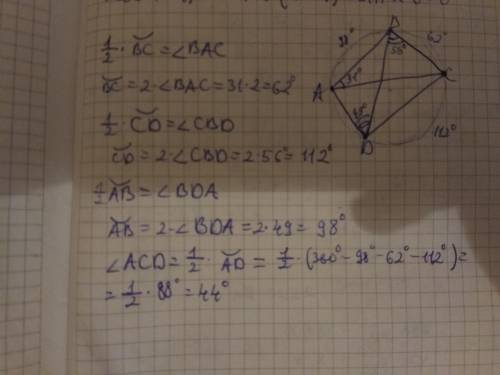 1/2 · ◡BC = ∠BAC
◡BC = 2 · ∠BAC = 31 · 2 = 62°
1/2 · ◡CD = ∠CBD
◡CD = 2 · ∠CBD = 2 · 56° = 112°
1/2 ◡AB = ∠BDA
◡AB = 2 · ∠BDA = 2 · 49 = 98°
∠ACD = 1/2 · ◡AD = 1/2 · (360° - 98° - 62° - 112°) =
= 1/2 · 88° = 44°
B
98°
62°
56°
A
31°
C
49°
D
112°